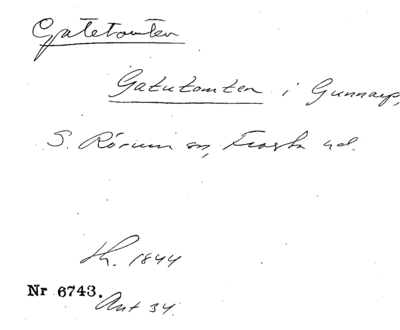 Gatetomten
Gatutomten i Gunnarp,
S. Rörum sn, Frosta hd.
Lh. 1844
Nr 6743.
Ant 34.